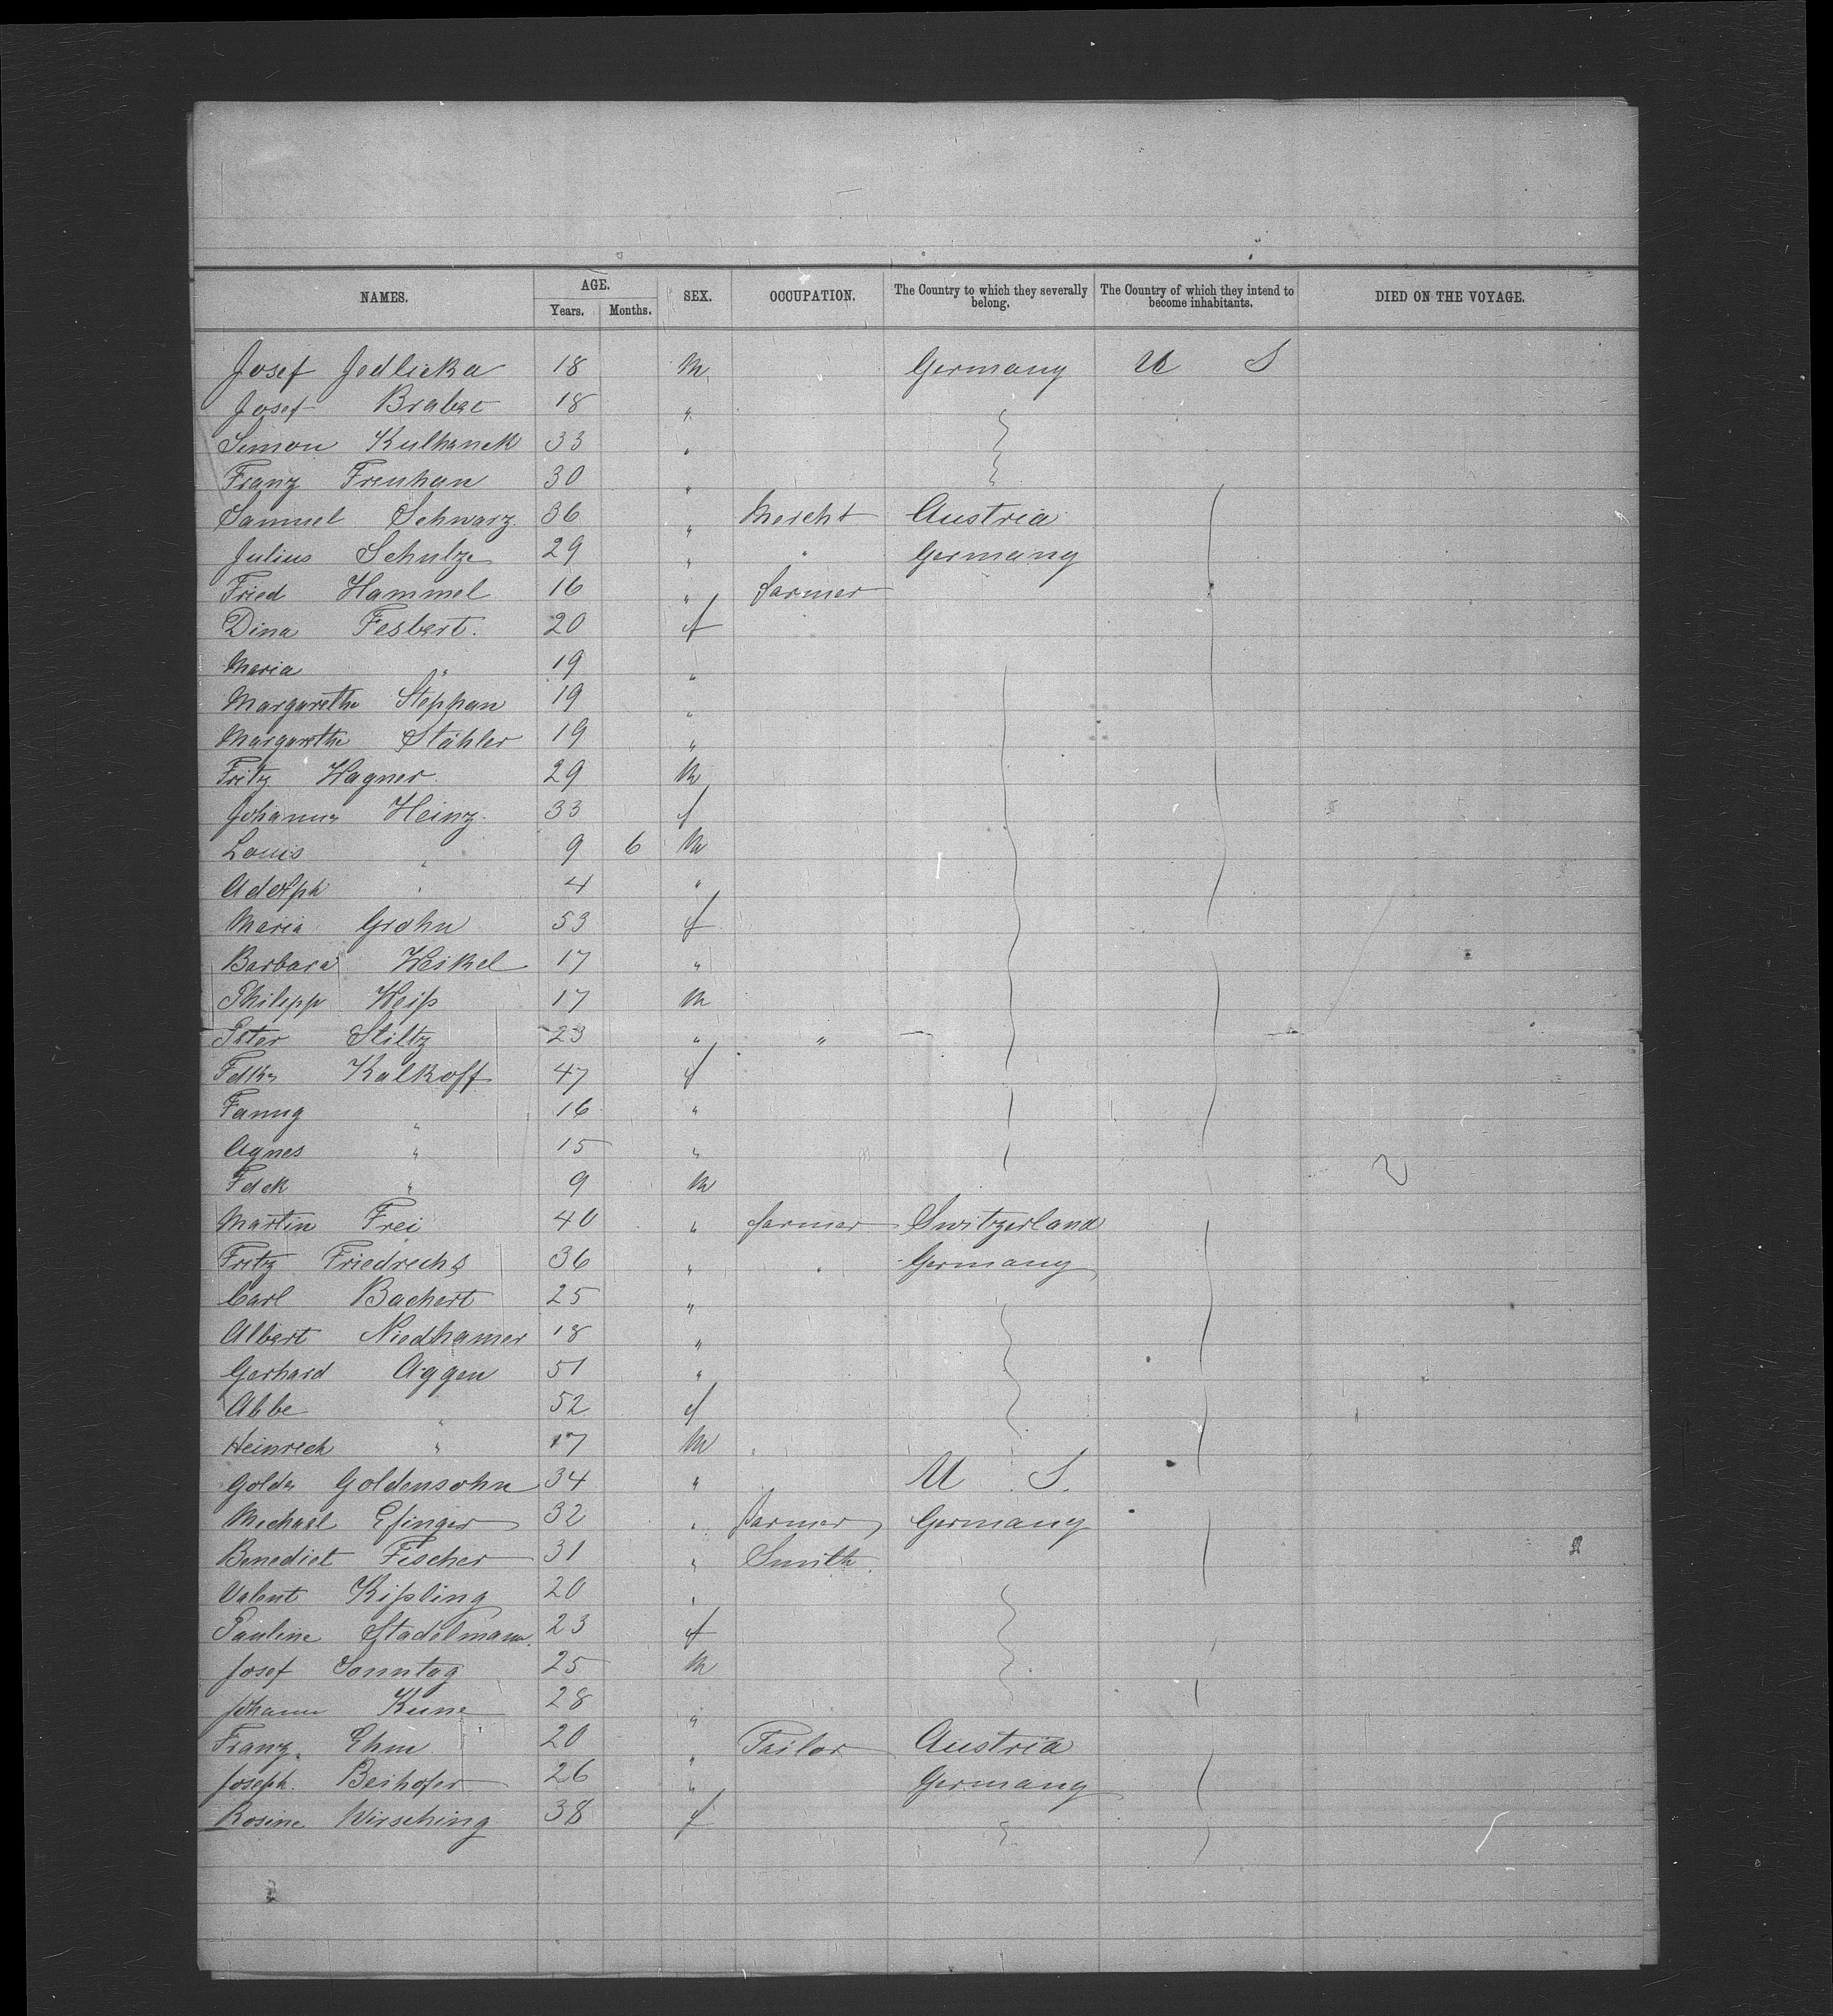 NAMES. AGE. SEX. OCCUPATION. The Country to which they severally belong. The Country of which they intend to become inhabitants. DIED ON THE VOYAGE.
Years. Months.
Josef Jedlicka 18 M Germany U S
Josef Brabec 18 "
Simon Kulhanek 33 "
Franz Trenhan 30 "
Samuel Schwarz 36 " Mercht Austria
Julius Schulze 29 " " Germany
Fried Hammel 16 " farmer
Dina Fesbert. 20 f
Maria " 19 "
Margarethe Stephan 19 "
Margarethe Stähler 19 "
Fritz Wagner 29 M
Johanna Heinz 33 f
Louis " 9 6 M
Adolph " 4 "
Maria Grohn 53 f
Barbara Weikel 17 "
Philipp Weiß 17 M
Peter Stiltz 23 " "
Fdke Kalkoff 47 f
Fanny " 16 "
Agnes " 15 "
Fdck " 9 M
Martin Frei 40 " farmer Switzerland
Fritz Friedrichs 36 " " Germany
Carl Bachert 25 "
Albert Niedhamer 18 "
Gerhard Aggen 51 "
Abbe " 52 f
Heinrich " 17 M
Golde Goldensohn 34 " U S.
Michael Efinger 32 " farmer Germany
Benedict Fischer 31 " Smith
Valent Kißling 20 "
Pauline Stadelmann 23 f
Josef Sonntag 25 M
Johann Kune 28 "
Franz Ehm 20 " Tailor Austria
Joseph Beihofer 26 " Germany
Rosine Wirsching 38 f